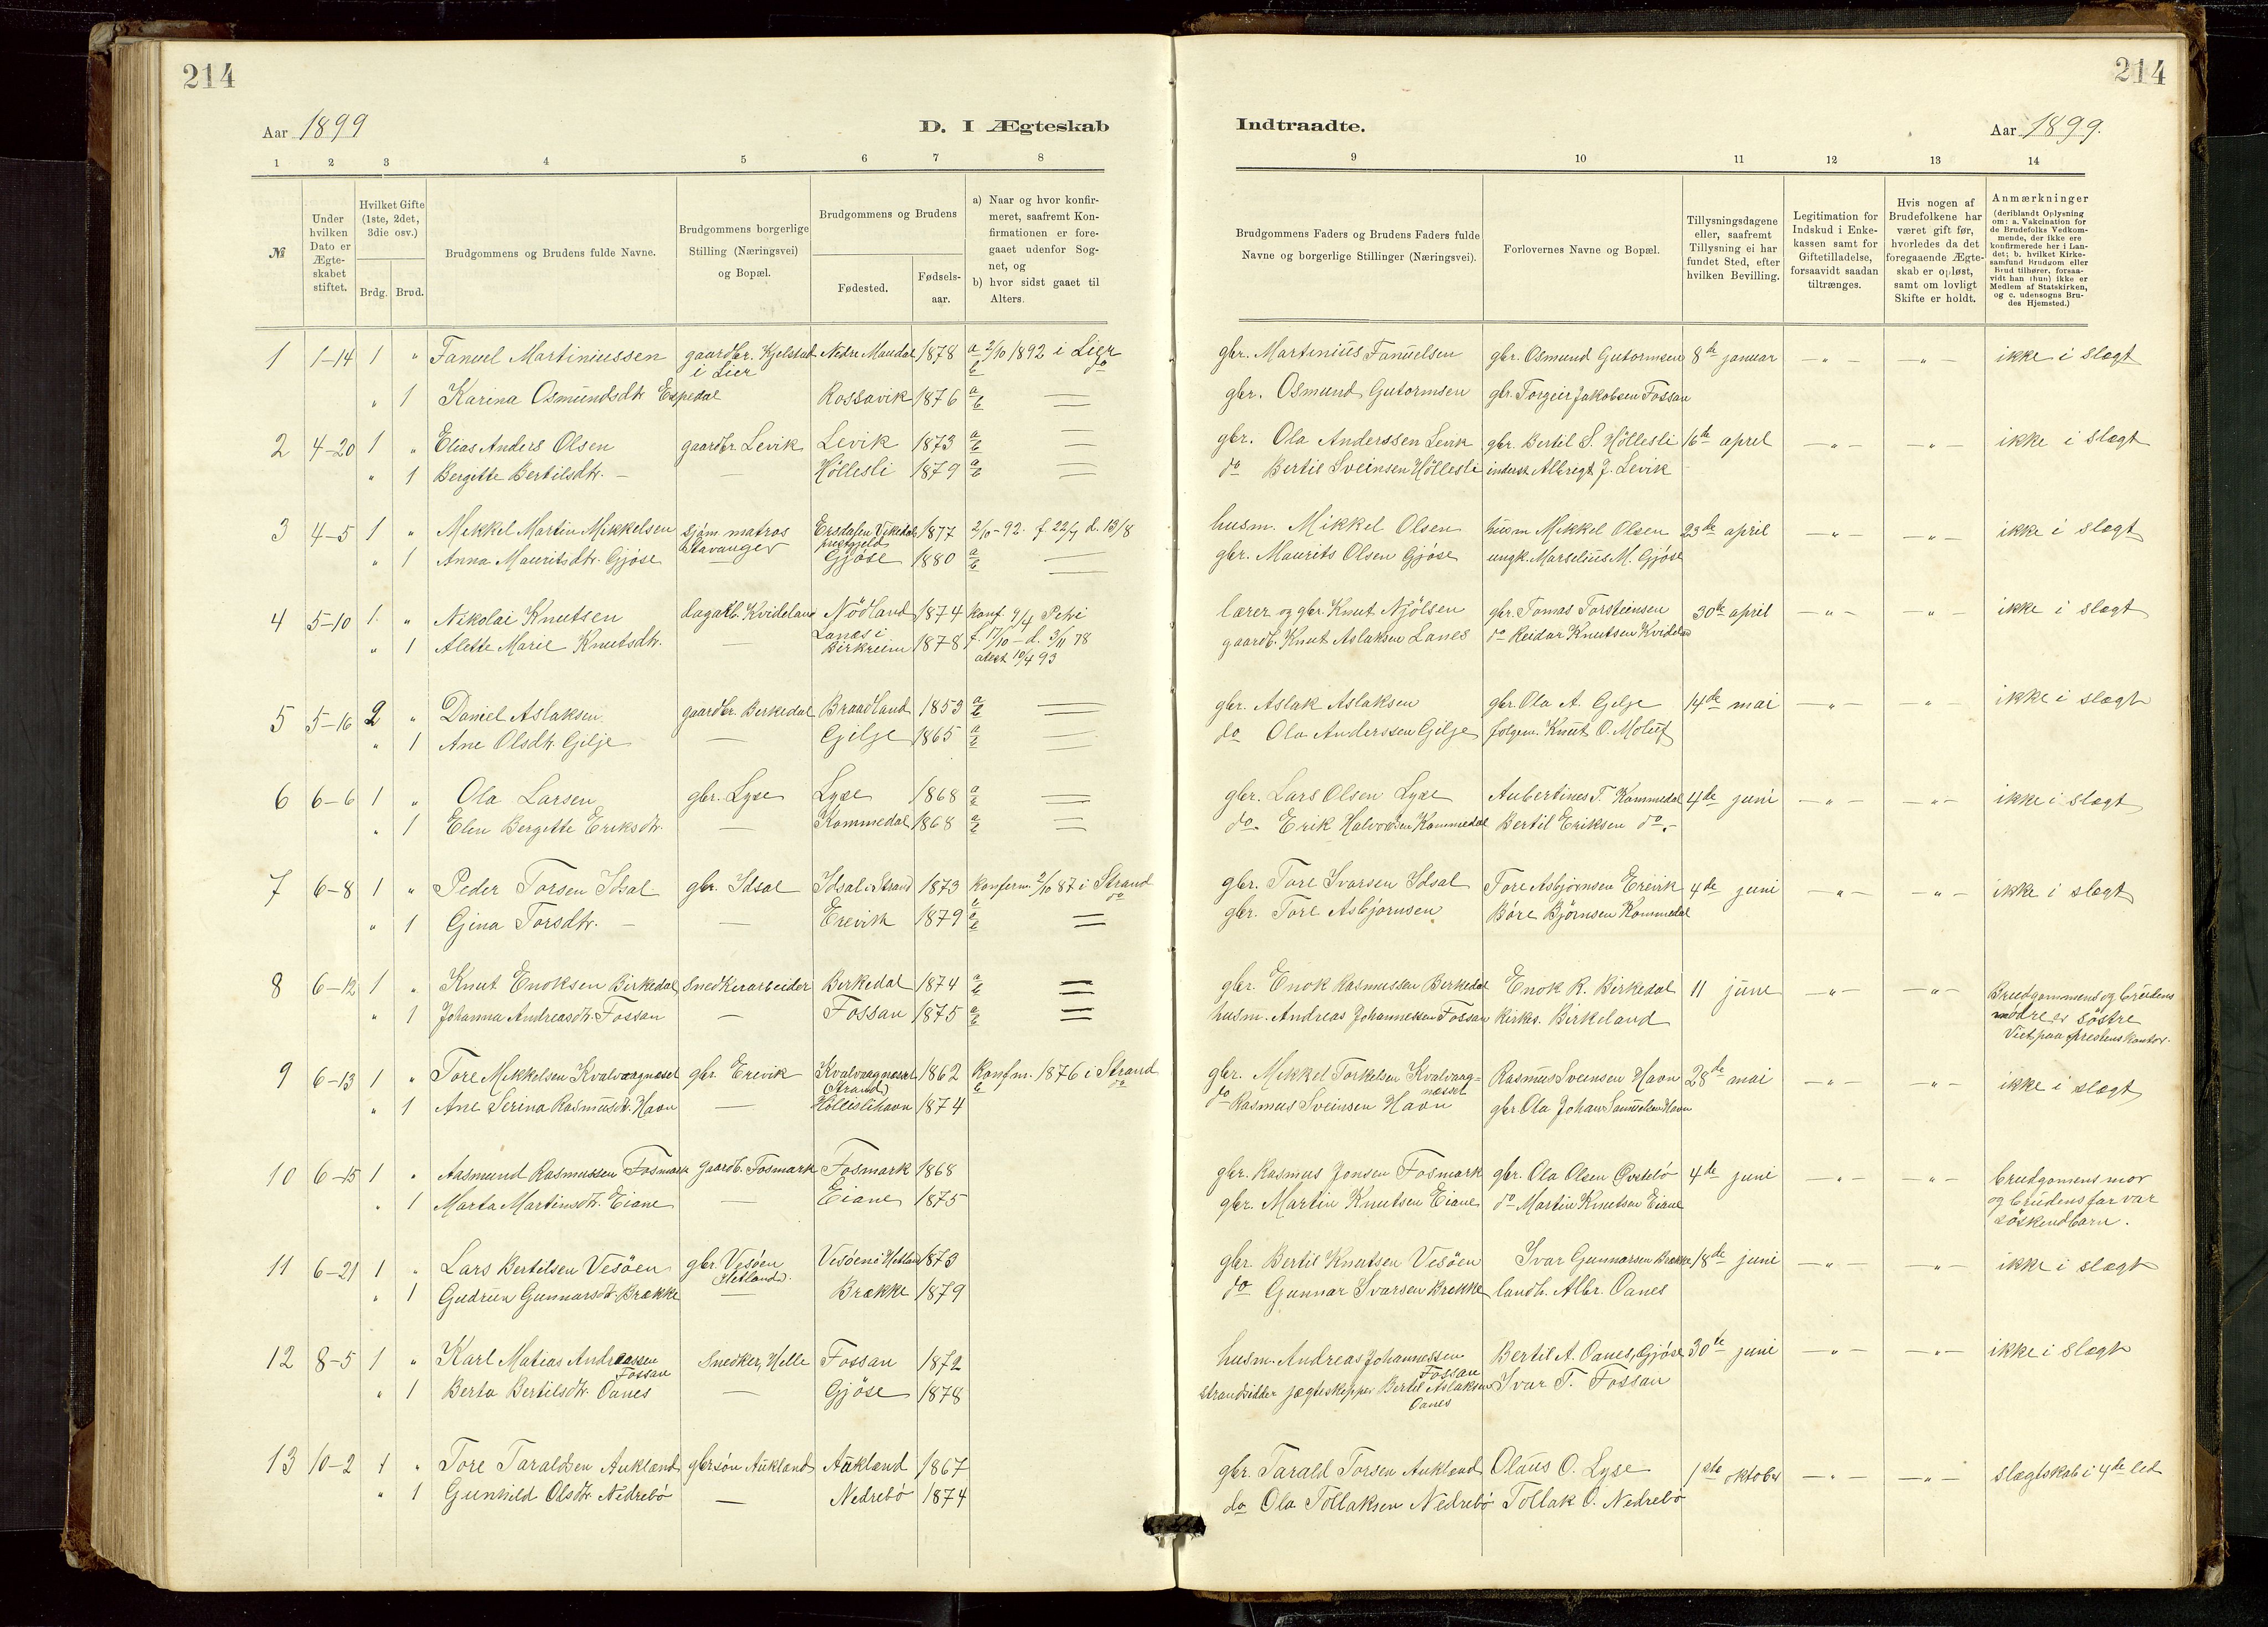 214
Aar 1899
D. I Ægteskab
1 2 3 4 5 6 7 8
№
Under hvilken Dato er Ægteskabet stiftet.
Hvilket Gifte (1ste, 2det, 3die osv.)
Brdg. Brud.
Brudgommens og Brudens fulde Navne.
Brudgommens borgerlige Stilling (Næringsvei) og Bopæl.
Brudgommens og Brudens
Fødested.
Fødselsaar.
a) Naar og hvor konfirmeret, saafremt Konfirmationen er foregaaet udenfor Sognet, og
b) hvor sidst gaaet til Alters.
1 1-14 1 " Fanuel Martiniussen gaardbr. Kjelstad i Lier Nedre Maudal 1878 a 2/10 1892 i Lier b do
" 1 Karina Osmundsdtr Espedal Rossavik 1876 a b
2 4-20 1 " Elias Anders Olsen gaardbr. Levik Levik 1873 a b
" 1 Bergitte Bertilsdtr. — Höllesli 1879 a b
3 4-5 1 " Mikkel Martin Mikkelsen sjöm. matros Stavanger Ersdalen Vikedals prestgjeld 1877 2/10-92. f 22/7 d. 13/8
" 1 Anna Mauritsdtr. Gjöse Gjöse 1880 a b
4 5-10 1 " Nikolai Knutsen dagarb. Kvideland Nödland 1874 konf. 9/4 Petri
" 1 Alette Marie Knutsdtr. — Lanes i Birkreim 1878 f. 17/10 - d. 3/11 78 atest 10/4 93
5 5-16 2 " Daniel Aslaksen gaardbr. Berkedal Braadland 1853 a b
" 1 Ane Olsdtr. Gilje — Gilje 1865 a b
6 6-6 1 " Ola Larsen gbr. Lyse Lyse 1868 a b
" 1 Elen Bergitte Eriksdtr. — Kommedal 1868 a b
7 6-8 1 " Peder Torsen Idsal gbr. Idsal Idsal i Strand 1873 konferm. 2/10 87 i Strand b do
" 1 Gina Torsdtr. — Erevik 1879 a b
8 6-12 1 " Knut Enoksen Birkedal Snedkerarbeider Berkedal 1874 a b
" 1 Johanna Andreasdtr. Fossan — Fossan 1875 a b
9 6-13 1 " Tore Mikkelsen Kvalvaagnæset gbr. Erevik Kvalvaagnæset (Strand) 1862 konfm. 1876 i Strand b do
" 1 Ane Serina Rasmusdtr. Havn — Höllislihavn 1874
10 6-15 1 " Aasmund Rasmussen Fosmark gaardb. Fosmark Fosmark 1868
" 1 Marta Martinsdtr. Eiane — Eiane 1875
11 6-21 1 " Lars Bertilsen Vesöen gbr. Vesöen (Hetland). Vesöen i Hetland 1873
" 1 Gudrun Gunnarsdtr. Brække — Brække 1879
12 8-5 1 " Karl Matias Andreassen Fossan Snedker, Helle Fossan 1872
" 1 Berta Bertilsdtr. Oanes — Gjöse 1878
13 10-2 1 " Tore Taraldsen Aukland gbrsön Aukland Aukland 1867
" 1 Gunhild Olsdtr. Nedrebö — Nedrebö 1874
214
Indtraadte.
Aar 1899.
9 10 11 12 13 14
Brudgommens Faders og Brudens Faders fulde Navne og borgerlige Stillinger (Næringsvei).
Forlovernes Navne og Bopæl.
Tillysningsdagene eller, saafremt Tillysning ei har fundet Sted, efter hvilken Bevilling.
Legitimation for Indskud i Enkekassen samt for Giftetilladelse, forsaavidt saadan tiltrænges.
Hvis nogen af Brudefolkene har været gift før, hvorledes da det foregaaende Ægteskab er opløst, samt om lovligt Skifte er holdt.
Anmærkninger (deriblandt Oplysning om: a. Vakcination for de Brudefolks Vedkommende, der ikke ere konfirmerede her i Landet; b. hvilket Kirkesamfund Brudgom eller Brud tilhører, forsaavidt han (hun) ikke er Medlem af Statskirken, og c. udensogns Brudes Hjemsted.)
gbr. Martinius Fanuelsen gbr. Osmund Gutormsen 8de januar — " — — " — ikke i slegt
gbr. Osmund Gutormsen gbr. Torgeir Jakobsen Fossan
gbr. Ola Anderssen Levik gbr. Bertil S. Höllesli 16de aprel — " — — " — ikke i slegt
do Bertil Sveinsen Höllesli inderst Albregt J. Levik
husm. Mikkel Olsen husm Mikkel Olsen 23de april — " — — " — ikke i slegt
gbr. Maurits Olsen Gjöse ungk. Marselius M. Gjöse
lærer og gbr. Knut Njölsen gbr. Tomas Torsteinsen 30te april — " — — " — ikke i slegt
gaardb. Knut Aslaksen Lanes do Reidar Knutsen Kvideland
gbr. Aslak Aslaksen gbr. Ola A. Gilje 14de mai — " — — " — ikke i slegt
do Ola Anderssen Gilje folgem. Knut O. Molauf
gbr. Lars Olsen Lyse Aubertines T. Kommedal 4de juni — " — — " — ikke i slegt
do. Erik Halvorsen Kommedal Bertil Eriksen do.
gbr. Tore Ivarsen Idsal Tore Asbjörnsen Erevik 4de juni — " — — " — ikke i slegt
gbr. Tore Asbjörnsen Böre Björnsen Kommedal
gbr. Enok Rasmussen Berkedal Enok R. Birkedal 11 june — " — — " — Brudgommens og brudens mödre er söstre
husm. Andreas Johannessen Fossan kirkes. Birkeland Viet paa prestens kontor.
gbr. Mikkel Torkelsen Kvalvaagnæsset Rasmus Sveinsen Havn 28de mai — " — — " — ikke i slegt
do Rasmus Sveinsen Havn gbr. Ola Johan Samuelsen Havn
gbr. Rasmus Jonsen Fosmark gbr. Ola Olsen Övrebö 4de juni — " — — " — brudgomens mor og brudens far var söskendbarn.
gbr. Martin Knutsen Eiane do Martin Knutsen Eiane
gbr. Bertil Knutsen Vesöen Ivar Gunnarsen Brække 18de juni — " — — " — ikke i slegt
do Gunnar Ivarsen Brekke landh. Albr. Oanes
husm. Andreas Johannessen Fossan Bertil A. Oanes, Gjöse 30te juni — " — — " — ikke i slegt
strandsidder jægteskipper Bertil Aslaksen Oanes Ivar T. Fossan
gbr. Tarald Torsen Aukland Olaus O. Lyse 1ste oktober — " — — " — slegtskab i 4de led
do Ola Tollaksen Nedrebö Tollak O. Nedrebö